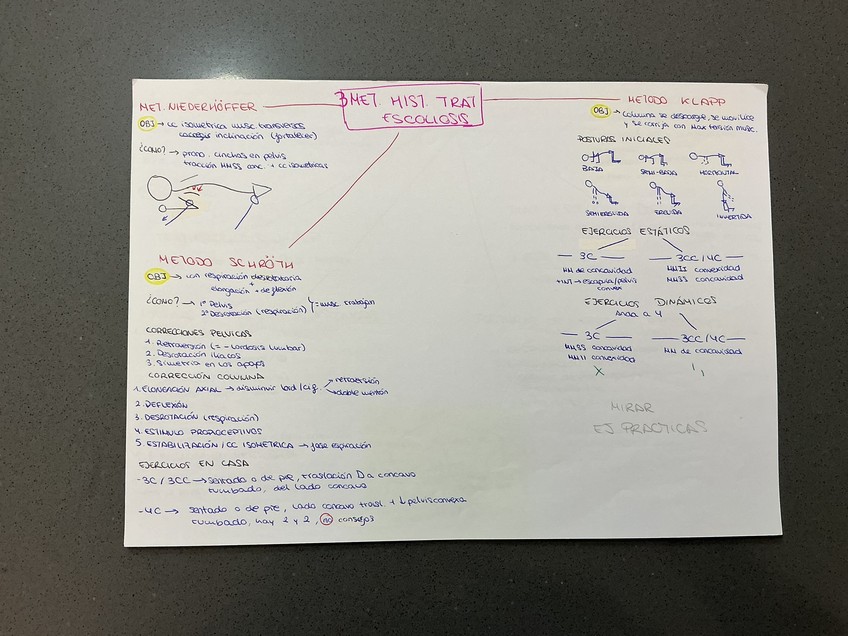 3 MET. HIST. TRAT
ESCOLIOSIS
MET. NIEDERHÖFFER
OBJ → cc isometrica musc. transversos
inclinación (fortalecer)
¿COMO? → prono. cinchas en pelvis
tracción MMSS conc. + cc isometricas
METODO SCHRÖTH
OBJ → con respiración desrotatoria
+
elongación + deflexión
¿COMO? → 1º Pelvis
2º Desrotación (respiración) } = musc trabajan
CORRECCIONES PELVICAS
1. Retroversión (= - lordosis lumbar)
2. Desrotación iliacos
3. Simetria en los apoyos
CORRECCIÓN COLUMNA
1. ELONGACIÓN AXIAL → disminuir lord/cif. → retroversión
→ doble mentón
2. DEFLEXIÓN
3. DESROTACIÓN (respiración)
4. ESTIMULO PROPIOCEPTIVOS
5. ESTABILIZACIÓN / CC ISOMETRICA → fase espiración
EJERCICIOS EN CASA
- 3C / 3CC → sentado o de pie, traslación D a concavo
tumbado, del lado concavo
- 4C → sentado o de pie, lado concavo trasl. + ↓ pelvis convexa
tumbado, hay 2 y 2, no consejos
METODO KLAPP
OBJ → Columna se descargue, se movilice
y se corrija con Max tensión musc.
POSTURAS INICIALES
BAJA SEMI-BAJA HORIZONTAL
SEMIERGUIDA ERGUIDA INVERTIDA
EJERCICIOS ESTÁTICOS
3C 3CC / 4C
MM de concavidad MMII convexidad
+ INT → escapula/pelvis MMSS concavidad
convex
EJERCICIOS DINÁMICOS
Anda a 4
3C 3CC / 4C
MMSS concavidad MM de concavidad
MMII convexidad
X
MIRAR
EJ PRACTICAS